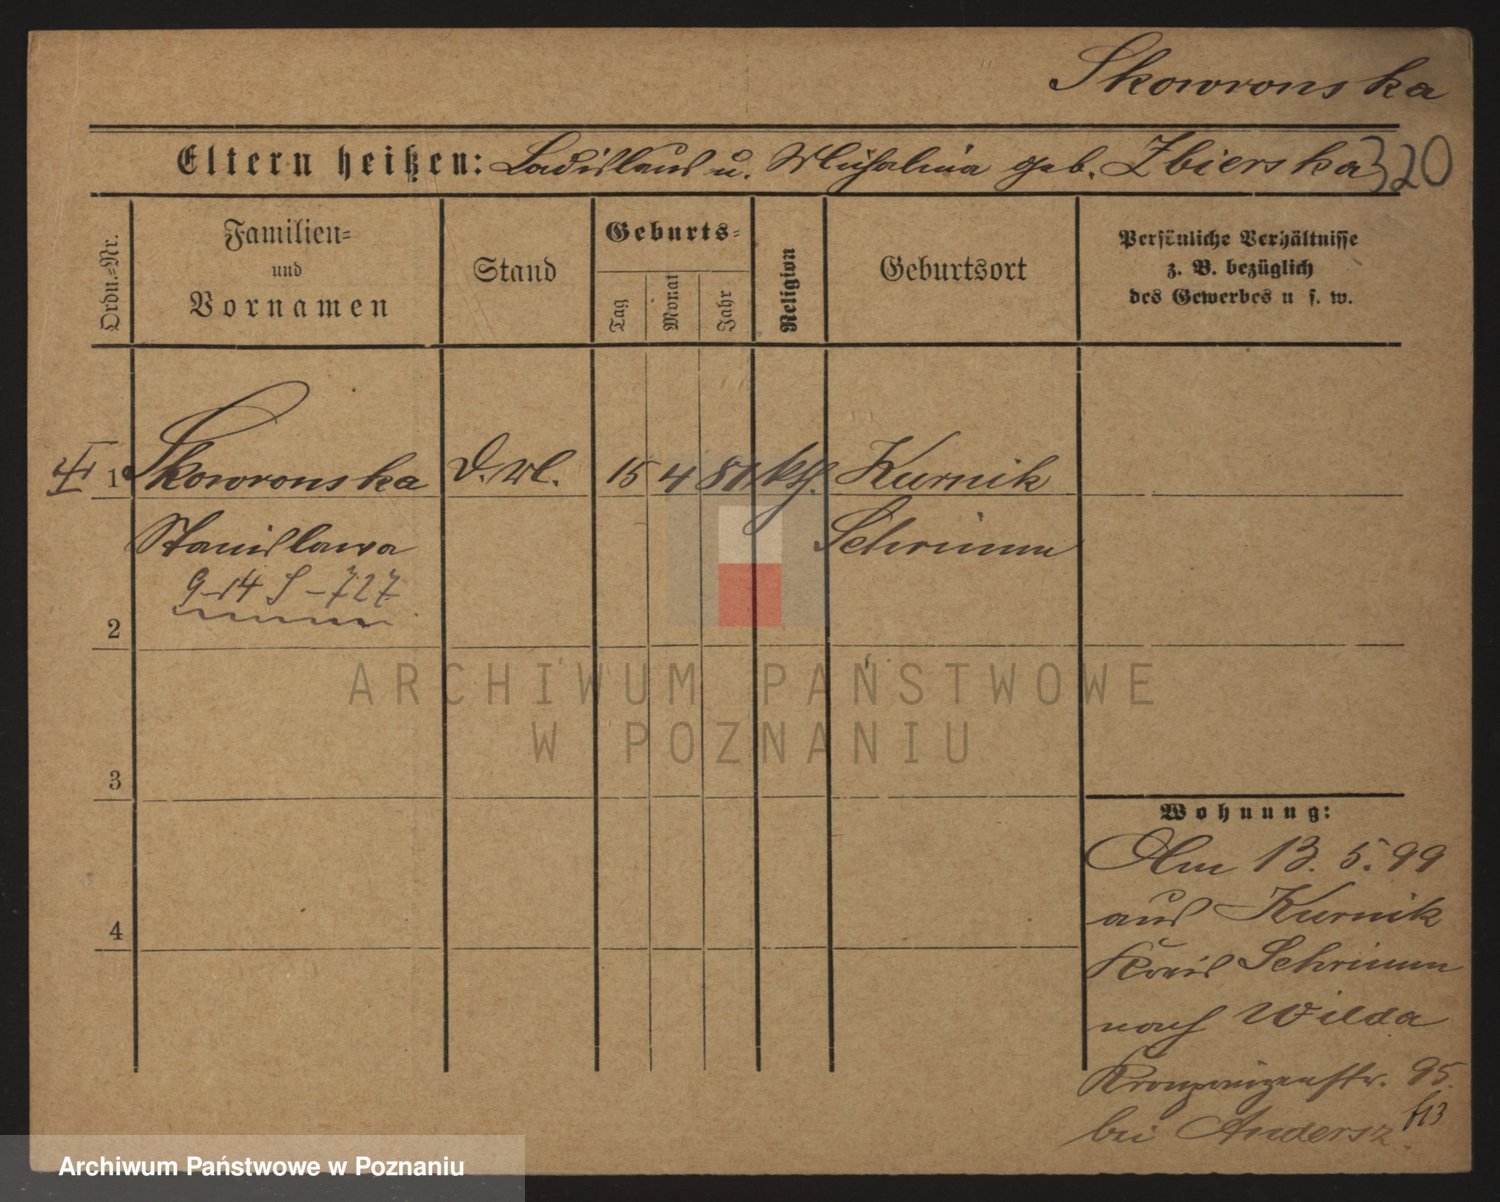 Skowronska
Eltern heißen: Ladislaus u. Michalina geb. Zbierska
320
Ordn.=Nr.
Familien=
und
Vornamen
Stand
Geburts=
Tag
Monat
Jahr
Religion
Geburtsort
Persönliche Verhältnisse
z. B. bezüglich
des Gewerbes u. s. w.
1 Skowronska D. 15 4 81 kth. Kurnik
Stanislawa Schrimm
9-14 S-727
2
3
4
Wohnung:
Am 13. 5. 99
aus Kurnik
Kreis Schrimm
nach Wilda
Kronprinzenstr. 95.
bei Andersz
ARCHIWUM PAŃSTWOWE
W POZNANIU
Archiwum Państwowe w Poznaniu